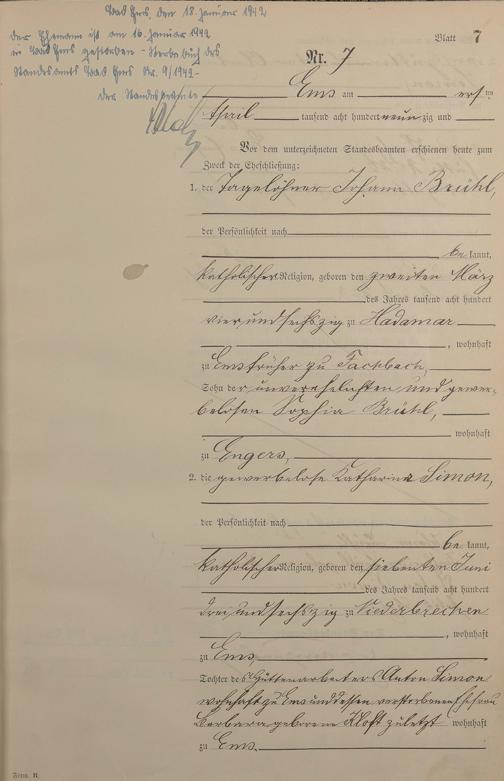 Bad Ems, den 18. Januar 1942
der Ehemann ist am 16. Januar 1942
in Bad Ems gestorben - Sterbebuch des
Standesamts Bad Ems Nr. 9/1942-
Der Standesbeamte
Blatt 7
Nr. 7
Ems am ersten
April tausend acht hundert neunzig und
Vor dem unterzeichneten Standesbeamten erschienen heute zum
Zweck der Eheschließung:
1. der Tagelöhner Johann Brühl,
der Persönlichkeit nach
bekannt,
katholischer Religion, geboren den zweiten März
des Jahres tausend acht hundert
vierundsechszig zu Hadamar
, wohnhaft
zu Ems früher zu Fachbach,
Sohn der unverehelichten und gewer-
belosen Sophia Brühl,
wohnhaft
zu Engers,
2. die gewerbelose Katharina Simon,
der Persönlichkeit nach
bekannt,
katholischer Religion, geboren den siebenten Juni
des Jahres tausend acht hundert
dreiundsechszig zu Niederbrechen
, wohnhaft
zu Ems
Tochter des Hüttenarbeiters Anton Simon
wohnhaft zu Ems und dessen verstorbenen Ehefrau
Barbara geborene Kloft zuletzt wohnhaft
zu Ems.
Form. B.